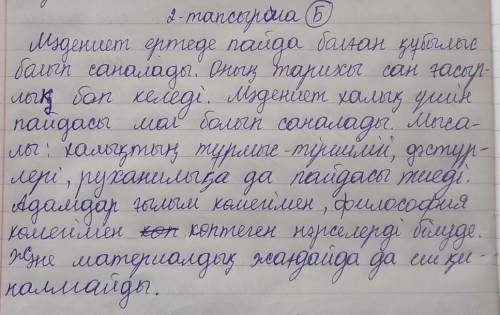 2-тапсырма Б
Мәдениет ертеде пайда болған құбылыс
болып саналады. Оның тарихы сан ғасыр-
лық боп келеді. Мәдениет халық үшін
пайдасы мол болып саналады. Мыса-
лы: халықтың тұрмыс-тіршілігі, дәстүр-
лері, руханилыққа да пайдасы тиеді.
Адамдар ғылым көмегімен, философия
көмегімен көптеген нәрселерді білуде.
Және материалдық жағдайда да еш қи-
налмайды.